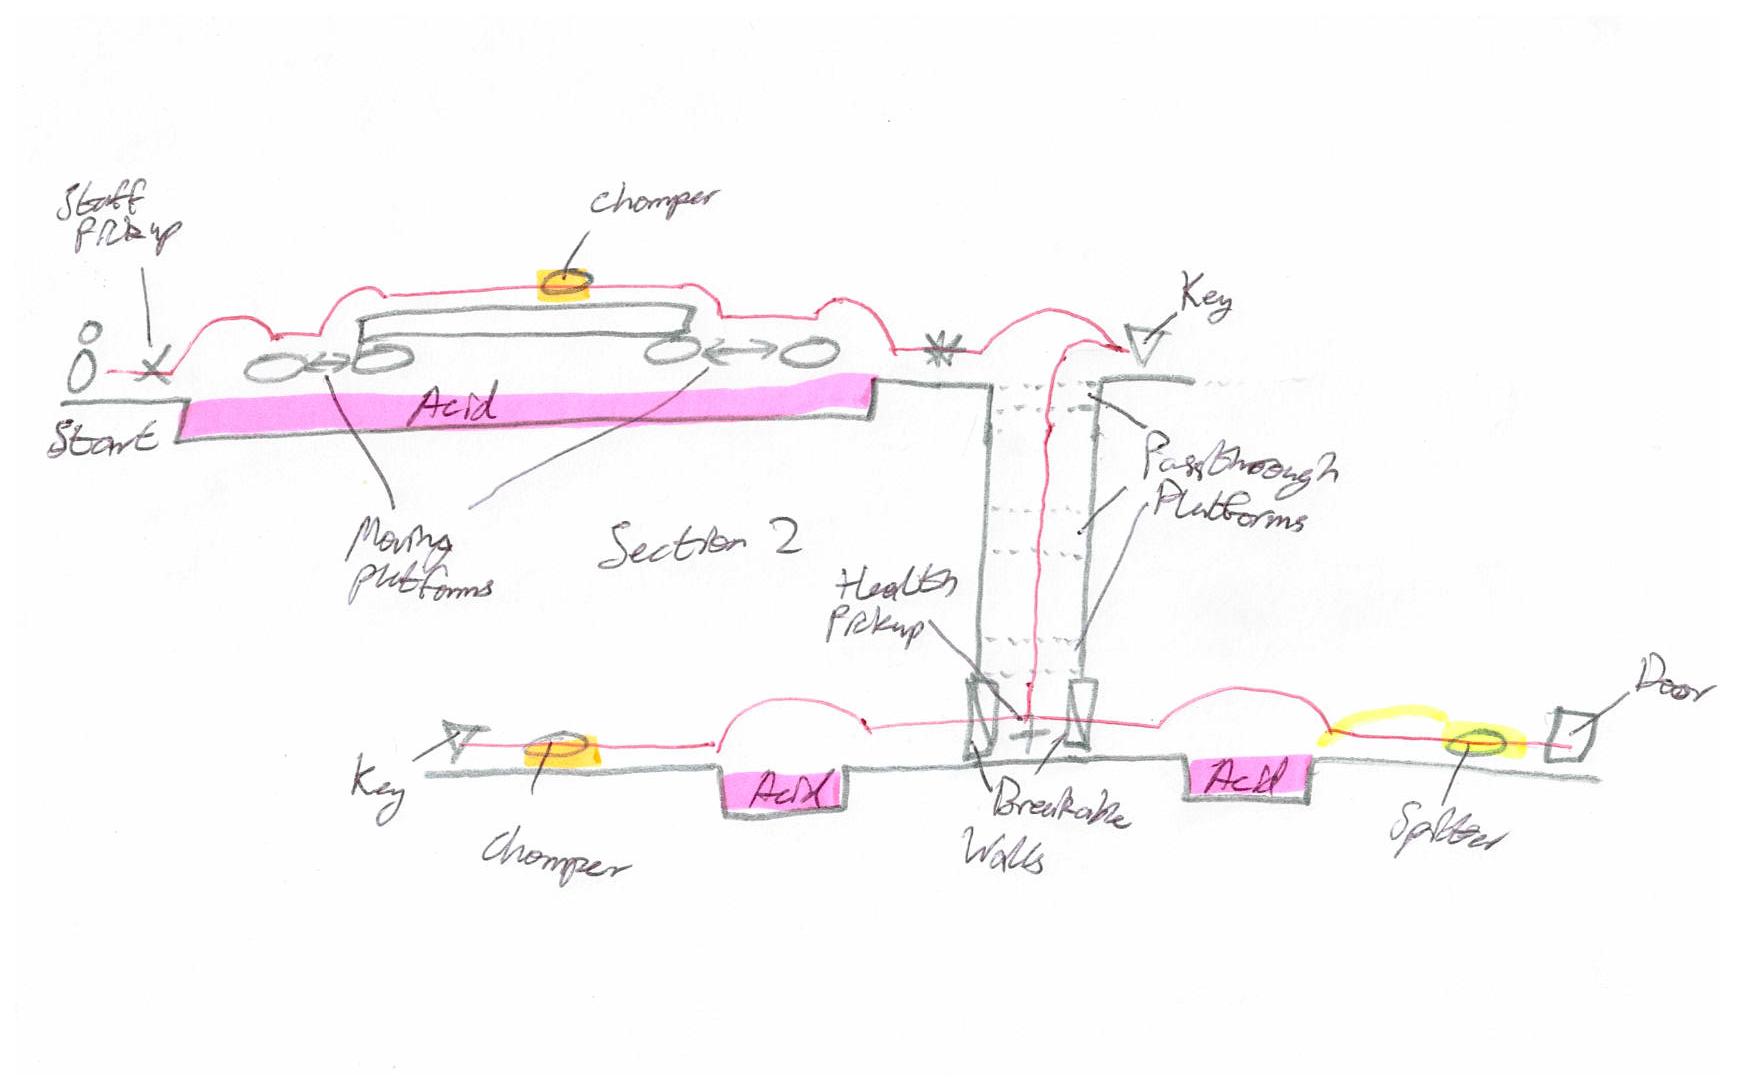 Staff
Pickup
Chomper
Key
Start
Acid
Passthrough
Platforms
Moving
platforms
Section 2
Health
Pickup
Door
Key
Acid
Acid
Chomper
Breakable
Walls
Spitter